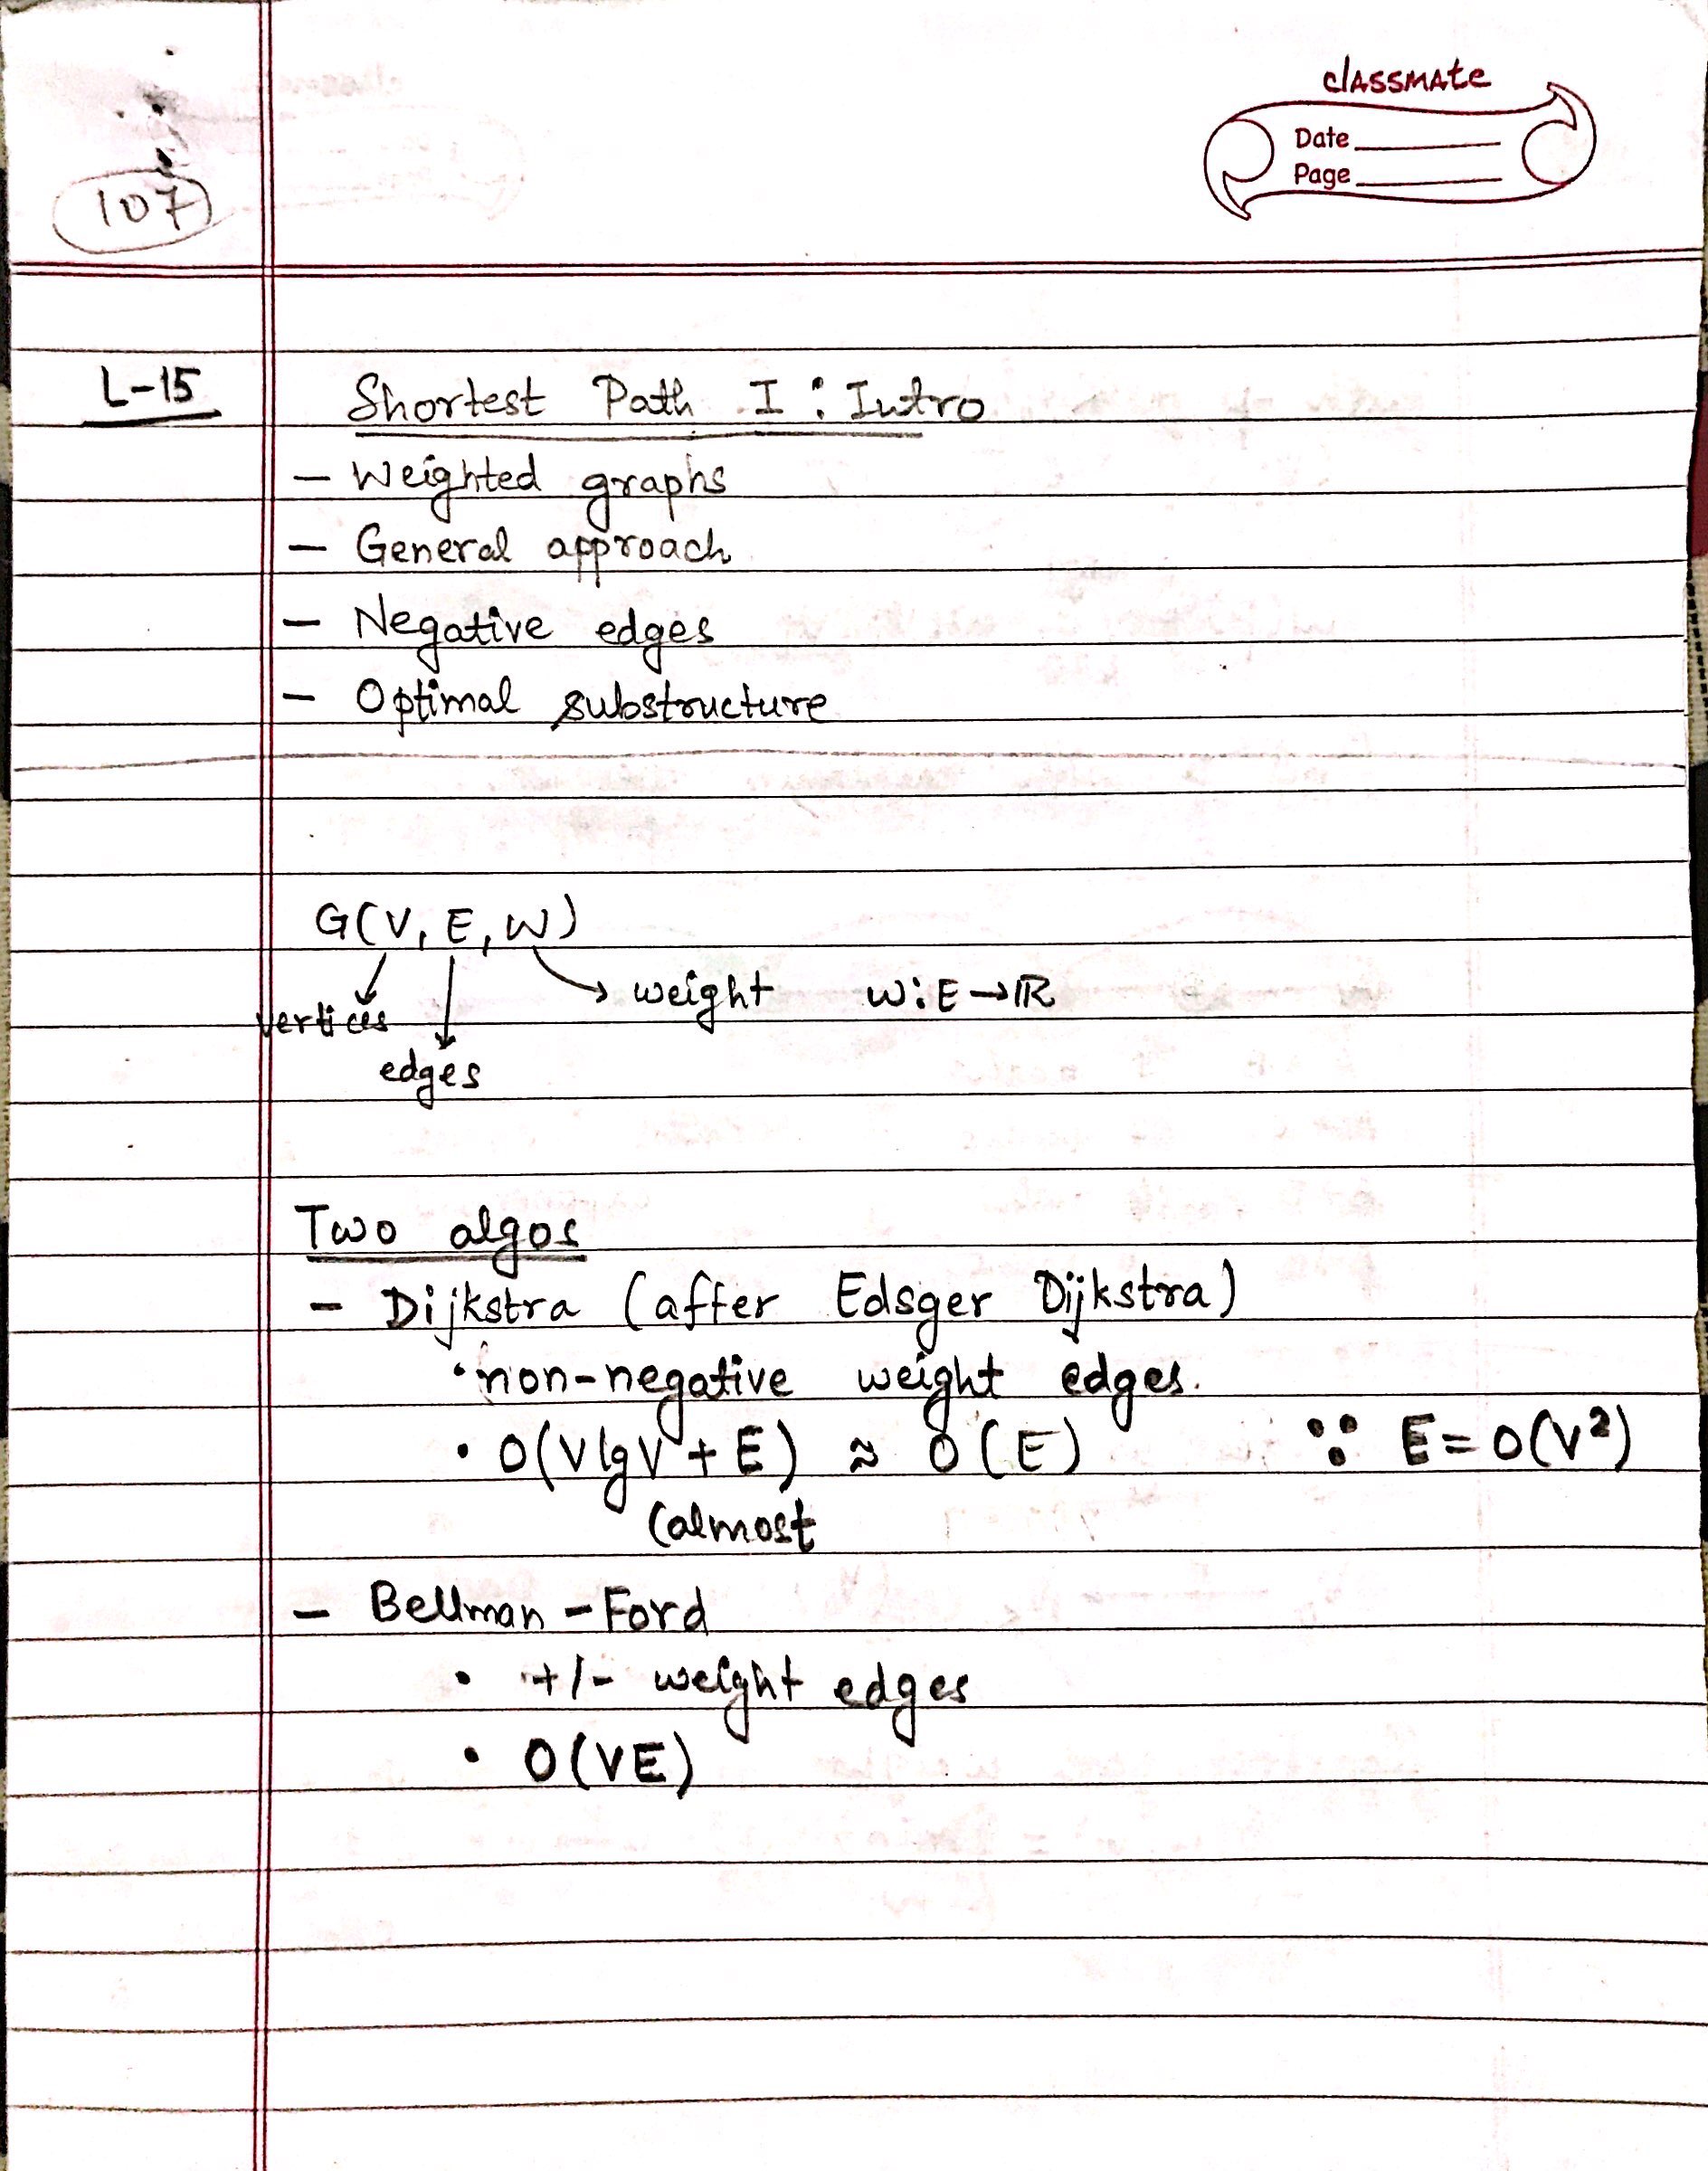 classmate
Date
Page
107
L-15 Shortest Path I : Intro
— Weighted graphs
— General approach
— Negative edges
— Optimal substructure
G(V, E, W)
weight W: E → ℝ
vertices
edges
Two algos
— Dijkstra (after Edsger Dijkstra)
• non-negative weight edges.
• O(V lg V + E) ≈ O(E) ∵ E = O(V²)
(almost
— Bellman-Ford
• +/- weight edges
• O(VE)